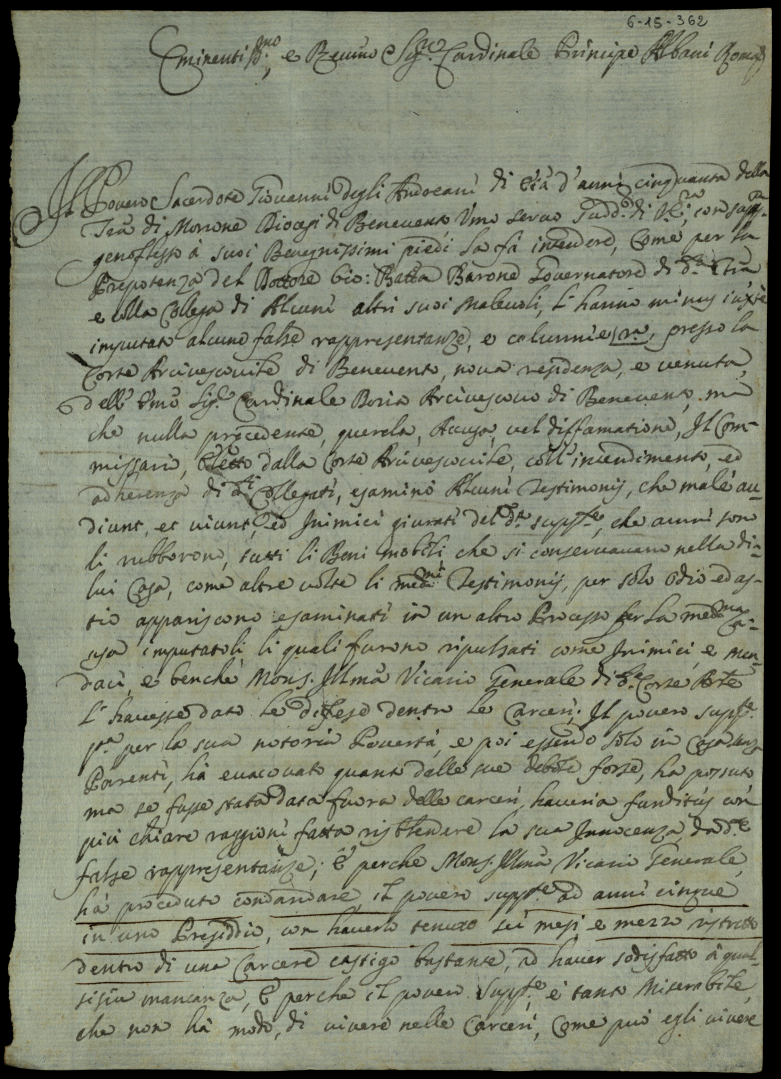 6-15-362
Eminentiss.mo, e Rev.mo Sig.re Cardinale Principe Albani Roma
Il Povero Sacerdote Giovanni degli Andreani di Età d'anni cinquanta della
Terà di Morrone Diocesi di Benevento Umo servo Sudd.o di V.E.za con supp.ca
genoflesso à suoi Benegnissimi piedi la fà intendere, Come per la
Prepotenza del Dottore Gio: Batta Barone Governatore di d.ta Terra
e colla Collega di Alcuni altri suoi malevoli, l'hanno minus iuste
imputato alcune false rappresentanze, e calunnie, presso la
Corte Arcivescovile di Benevento, nova residenza, e venuta,
dell'Emo Sig.re Cardinale Boria Arcivescovo di Benevento, mà
che nulla precedente, querela, Accusa, vel diffamatione, Il Com-
missario, Eletto dalla Corte Arcivescovile, coll'intendimento, ed
adherenza di d.ti Collegati, esaminò Alcuni Testimonij, che malè au-
diunt, et viunt, ed Inimici giurati del d.to supp.te, che anni sono
li rubborono, tutti li Beni mobili che si conservavano nella di=
lui Casa, come altre volte li med.mi Testimonij, per solo odio ed as-
tio appariscono esaminati in un altro Processo per la med.ma Ca-
usa imputatoli li quali furono ripulsati come Inimici, e men-
daci, e benche Mons. Illmo Vicario Generale di d.ta Corte Arc.le
L'havesse dato le difese dentro le Carceri, Il povero supp.te
p.ta per la sua notoria Povertà, e poi essendo solo in Casa senza
Parenti, hà evacovato quanto dalle sue debole forse, ha possuto
ma se fusse stata data fuora delle carceri, haveria funditus con
più chiare raggioni fatta risblendere la sua Innocenza da d.te
false rappresentanze; E perche Mons. Illmo Vicario Generale,
hà proceduto condandare, il povero supp.te ad anni cinque
in uno Presidio, con haverlo tenuto sei mesi e mezzo ristretto
dentro di una Carcere castigo bastante, ad haver sodisfatto à qual-
sisia mancanza, E perche il povero supp.te è tanto Miserabile,
che non hà modo, di vivere nelle Carceri, Come può egli vivere